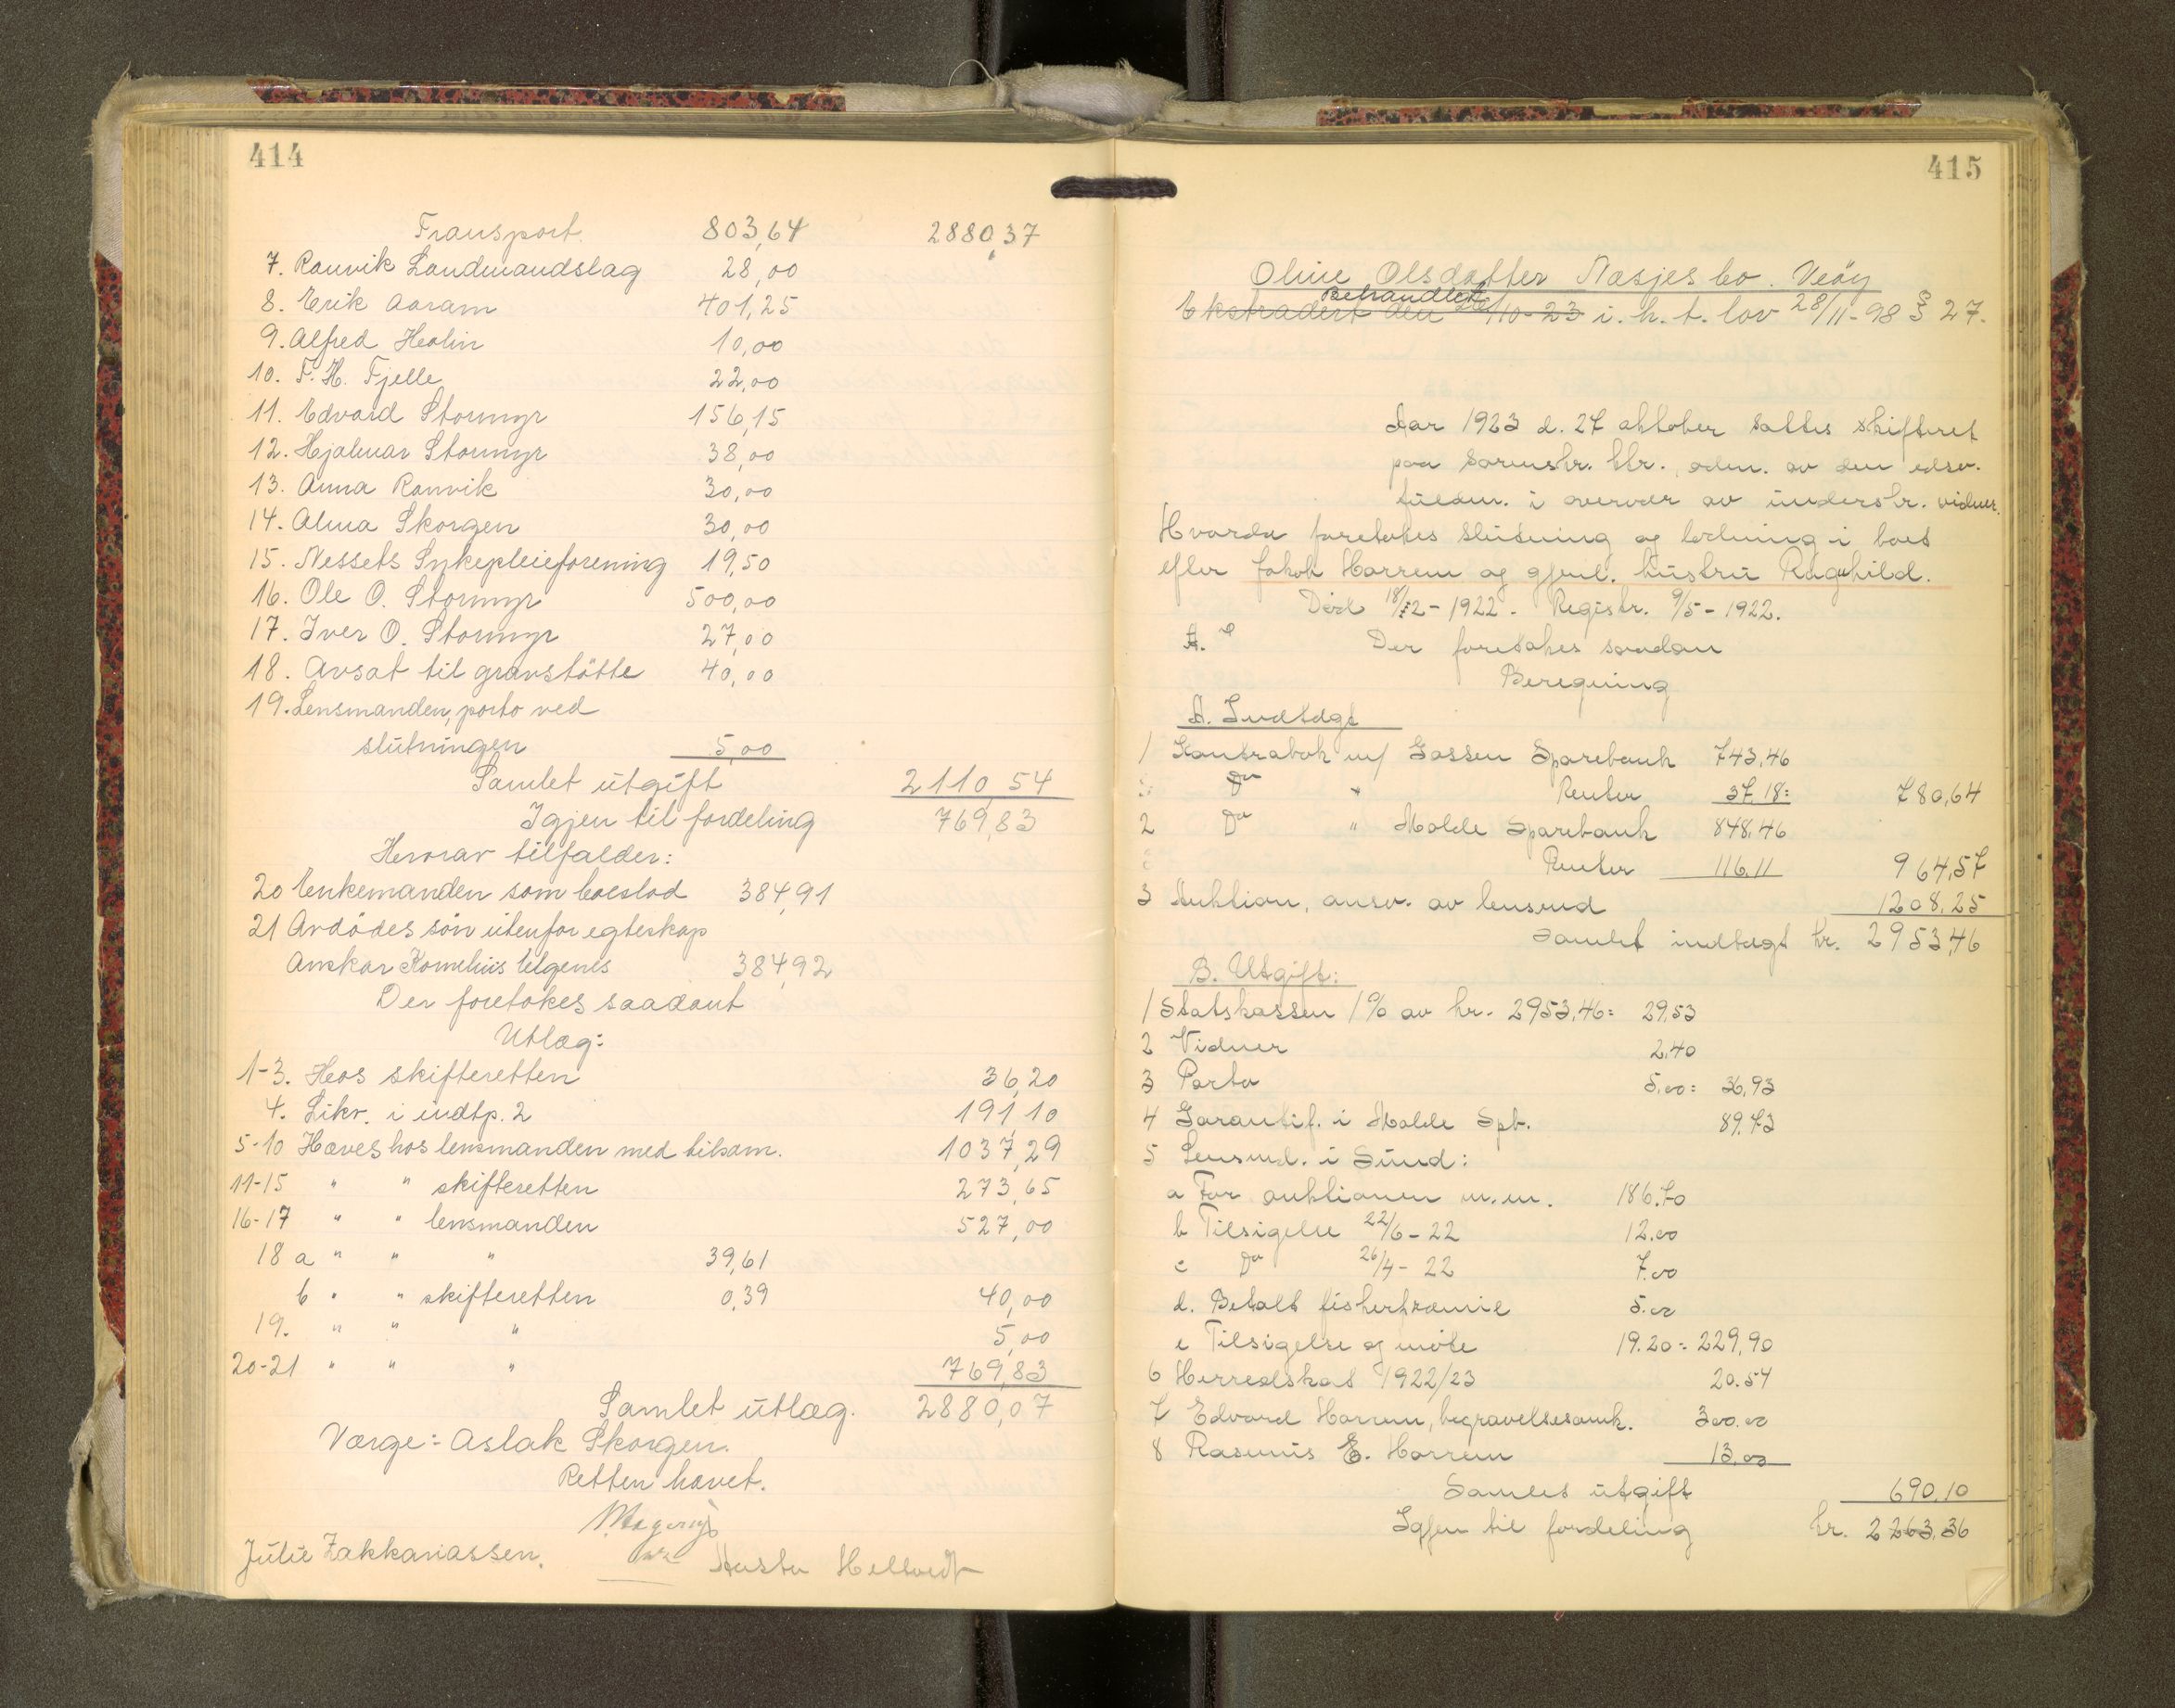 414
Transport. 803,64 2880,37
7. Ranvik Landmandslag 28,00
8. Erik Aaram 401,25
9. Alfred Heolin 10,00
10. F. H. Fjelle 22,00
11. Edvard Stormyr 156,15
12. Hjalmar Stormyr 38,00
13. Anna Ranvik 30,00
14. Alma Skorgen 30,00
15. Nessets Sykepleieforening 19,50
16. Ole O. Stormyr 500,00
17. Iver O. Stormyr 27,00
18. Avsat til gravstötte 40,00
19. Lensmanden, porto ved
slutningen 5,00
Samlet utgift 2110 54
Igjen til fordeling 769,83
Herav tilfalder:
20 Enkemanden som boeslod 384,91
21 Avdödes sön utenfor egteskap
Anskar Kornelius 384,92
Der foretokes saadant
Utlæg:
1-3. Hos skifteretten 36,20
4. Likv. i indtp. 2 191,10
5-10 Hæves hos lensmanden med tilsam. 1037,29
11-15 " " skifteretten 273,65
16-17 " " lensmanden 527,00
18 a " " " 39,61
b " " skifteretten 0,39 40,00
19. " " " 5,00
20-21 " " " 769,83
Samlet utlæg. 2880,07
Værge: Aslak Skorgen.
Retten hævet.
Julie Zakkariassen. Aasta Heltvedt
415
Oline Olsdatter Næsjes bo. Veöy
Behandlet
Ekstradert den 26/10-23 i. h. t. lov 28/11-98 § 27.
Aar 1923 d. 27 oktober sattes skifteret
paa sorenskr. ktr. adm. av den edsv.
fuldm. i overvær av underskr. vidner.
Hvorda foretokes slutning og lodning i boet
efter Jakob Harrem og gjenl. hustru Ragnhild.
Död 18/2-1922. Registr. 9/5-1922.
Der foretokes saadan
Beregning
A. Indtægt
1 Kontrabok m/ Gossen Sparebank 743,46
Do " Renter 37.18: 780,64
2 Do " Molde Sparebank 848,46
Renter 116.11 964,57
3 Auktion, ansv. av lensmd 1208,25
Samlet indtægt kr. 2953,46
B. Utgift:
1 Statskassen 1% av kr. 2953,46: 29,53
2 Vidner 2,40
3 Porto 5.00: 36,93
4 Garantif. i Molde Spb. 89.73
5 Lensmd. i Sund:
a For auktionen m.m. 186.70
b Tilsigelse 22/6-22 12.00
c Do 26/4-22 7.00
d. Betalt 5.00
e Tilsigelse og möte 19.20: 229,90
6 Herredskat 1922/23 20.54
7 Edvard Harrem, begravelsesomk. 300.00
8 Rasmus E. Harrem 13.00
Samlet utgift 690.10
Igjen til fordeling kr. 2263.36